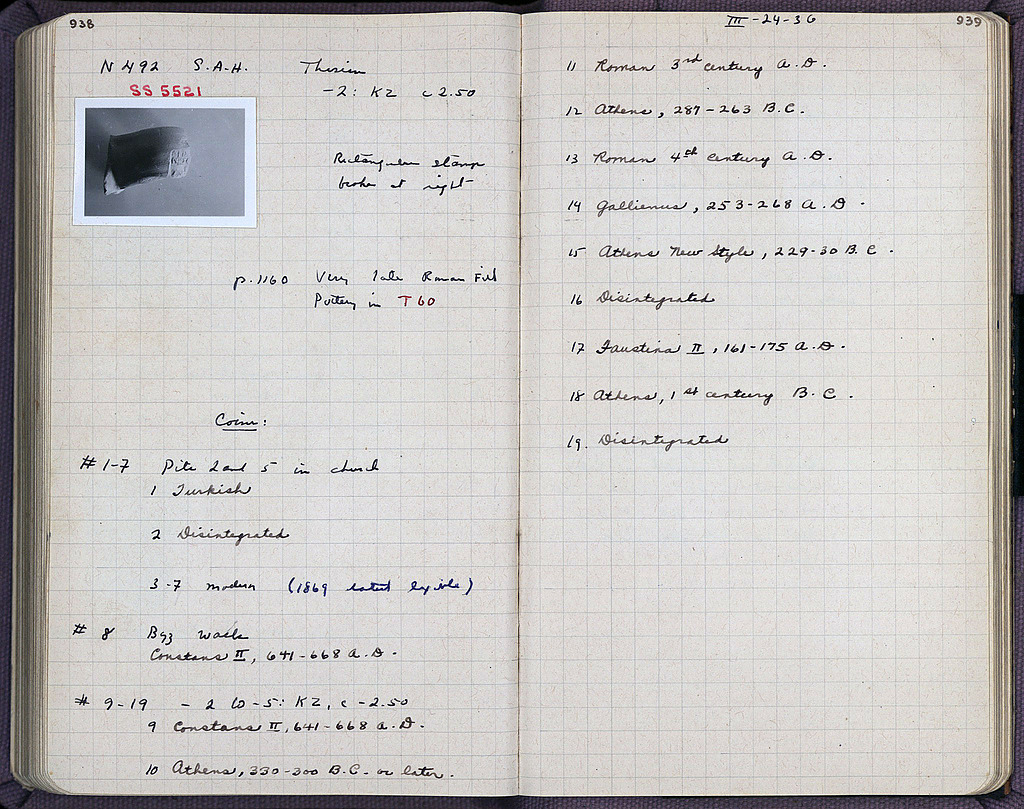 938
N 492 S.A.H. Thasian
SS 5521
-2: KZ c 2.50
Rectangular stamp
broken at right
p. 1160 Very late Roman Fill
Pottery in T 60
Coins:
# 1-7 Pits 2 and 5 in church
1 Turkish
2 Disintegrated
3-7 modern (1869 latest legible)
# 8 Byz walls
Constans II, 641-668 A.D.
# 9-19 - 2 to -5: KZ, c -2.50
9 Constans II, 641-668 A.D.
10 Athens, 330-300 B.C. or later.
III-24-36
939
11 Roman 3rd century A.D.
12 Athens, 287-263 B.C.
13 Roman 4th century A.D.
14 Gallienus, 253-268 A.D.
15 Athens New Style, 229-30 B.C.
16 Disintegrated
17 Faustina II, 161-175 A.D.
18 Athens, 1st century B.C.
19. Disintegrated